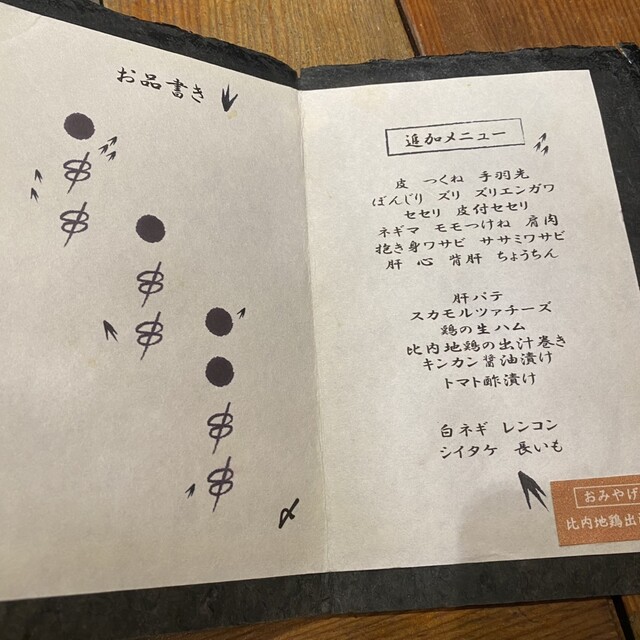 お品書き
〆
追加メニュー
皮 つくね 手羽先
ぼんじり ズリ ズリエンガワ
セセリ 皮付セセリ
ネギマ モモつけね 肩肉
抱き身ワサビ ササミワサビ
肝 心 背肝 ちょうちん
肝パテ
スカモルツァチーズ
鶏の生ハム
比内地鶏の出汁巻き
キンカン醤油漬け
トマト酢漬け
白ネギ レンコン
シイタケ 長いも
おみやげ
比内地鶏出